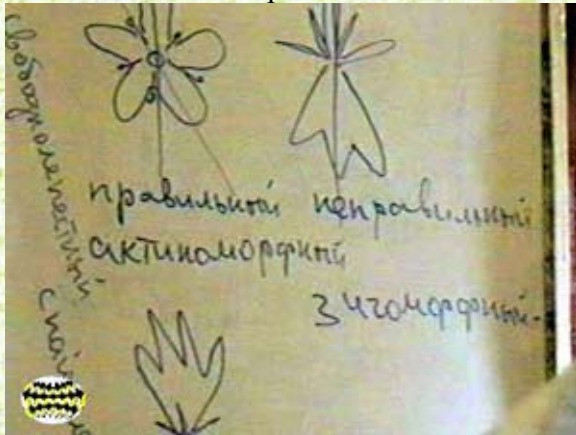 свободнолепестный
правильный неправильный
актиноморфный
зигоморфный-